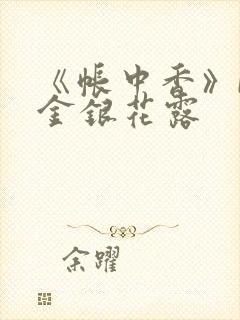 《帐中香》
金银花露
余躍